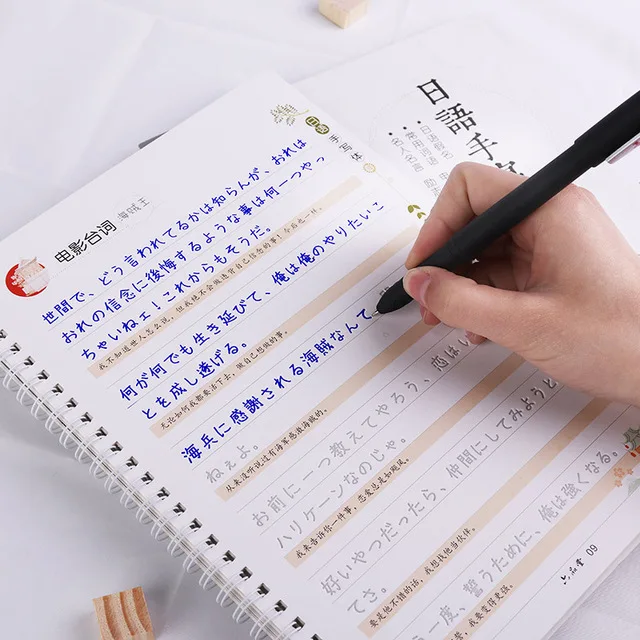 日語手
日语
手写体
电影台词
海贼王
世間で、どう言われてるかは知らんが、おれは
おれの信念に後悔するような事は何一つやっ
ちゃいねェ!これからもそうだ。
我不知道世人怎么说,但我绝不会做违背自己信念的事!今后也一样。
何が何でも生き延びて、俺は俺のやりたいこ
とを成し遂げる。
无论如何我都要活下去,做自己想做的事。
海兵に感謝される海賊なんて
ねぇよ。
从来没听说过有海军感谢海贼的。
お前に一つ教えてやろう、恋はい
ハリケーンなのじゃ。
我来告诉你一件事,恋爱总是如飓风。
好いやつだったら、仲間にしてみようと
てさ。
要是他不错的话,我想找他当伙伴。
一度、誓うために、俺は強くなる。
我要变得更强。
六品堂 09